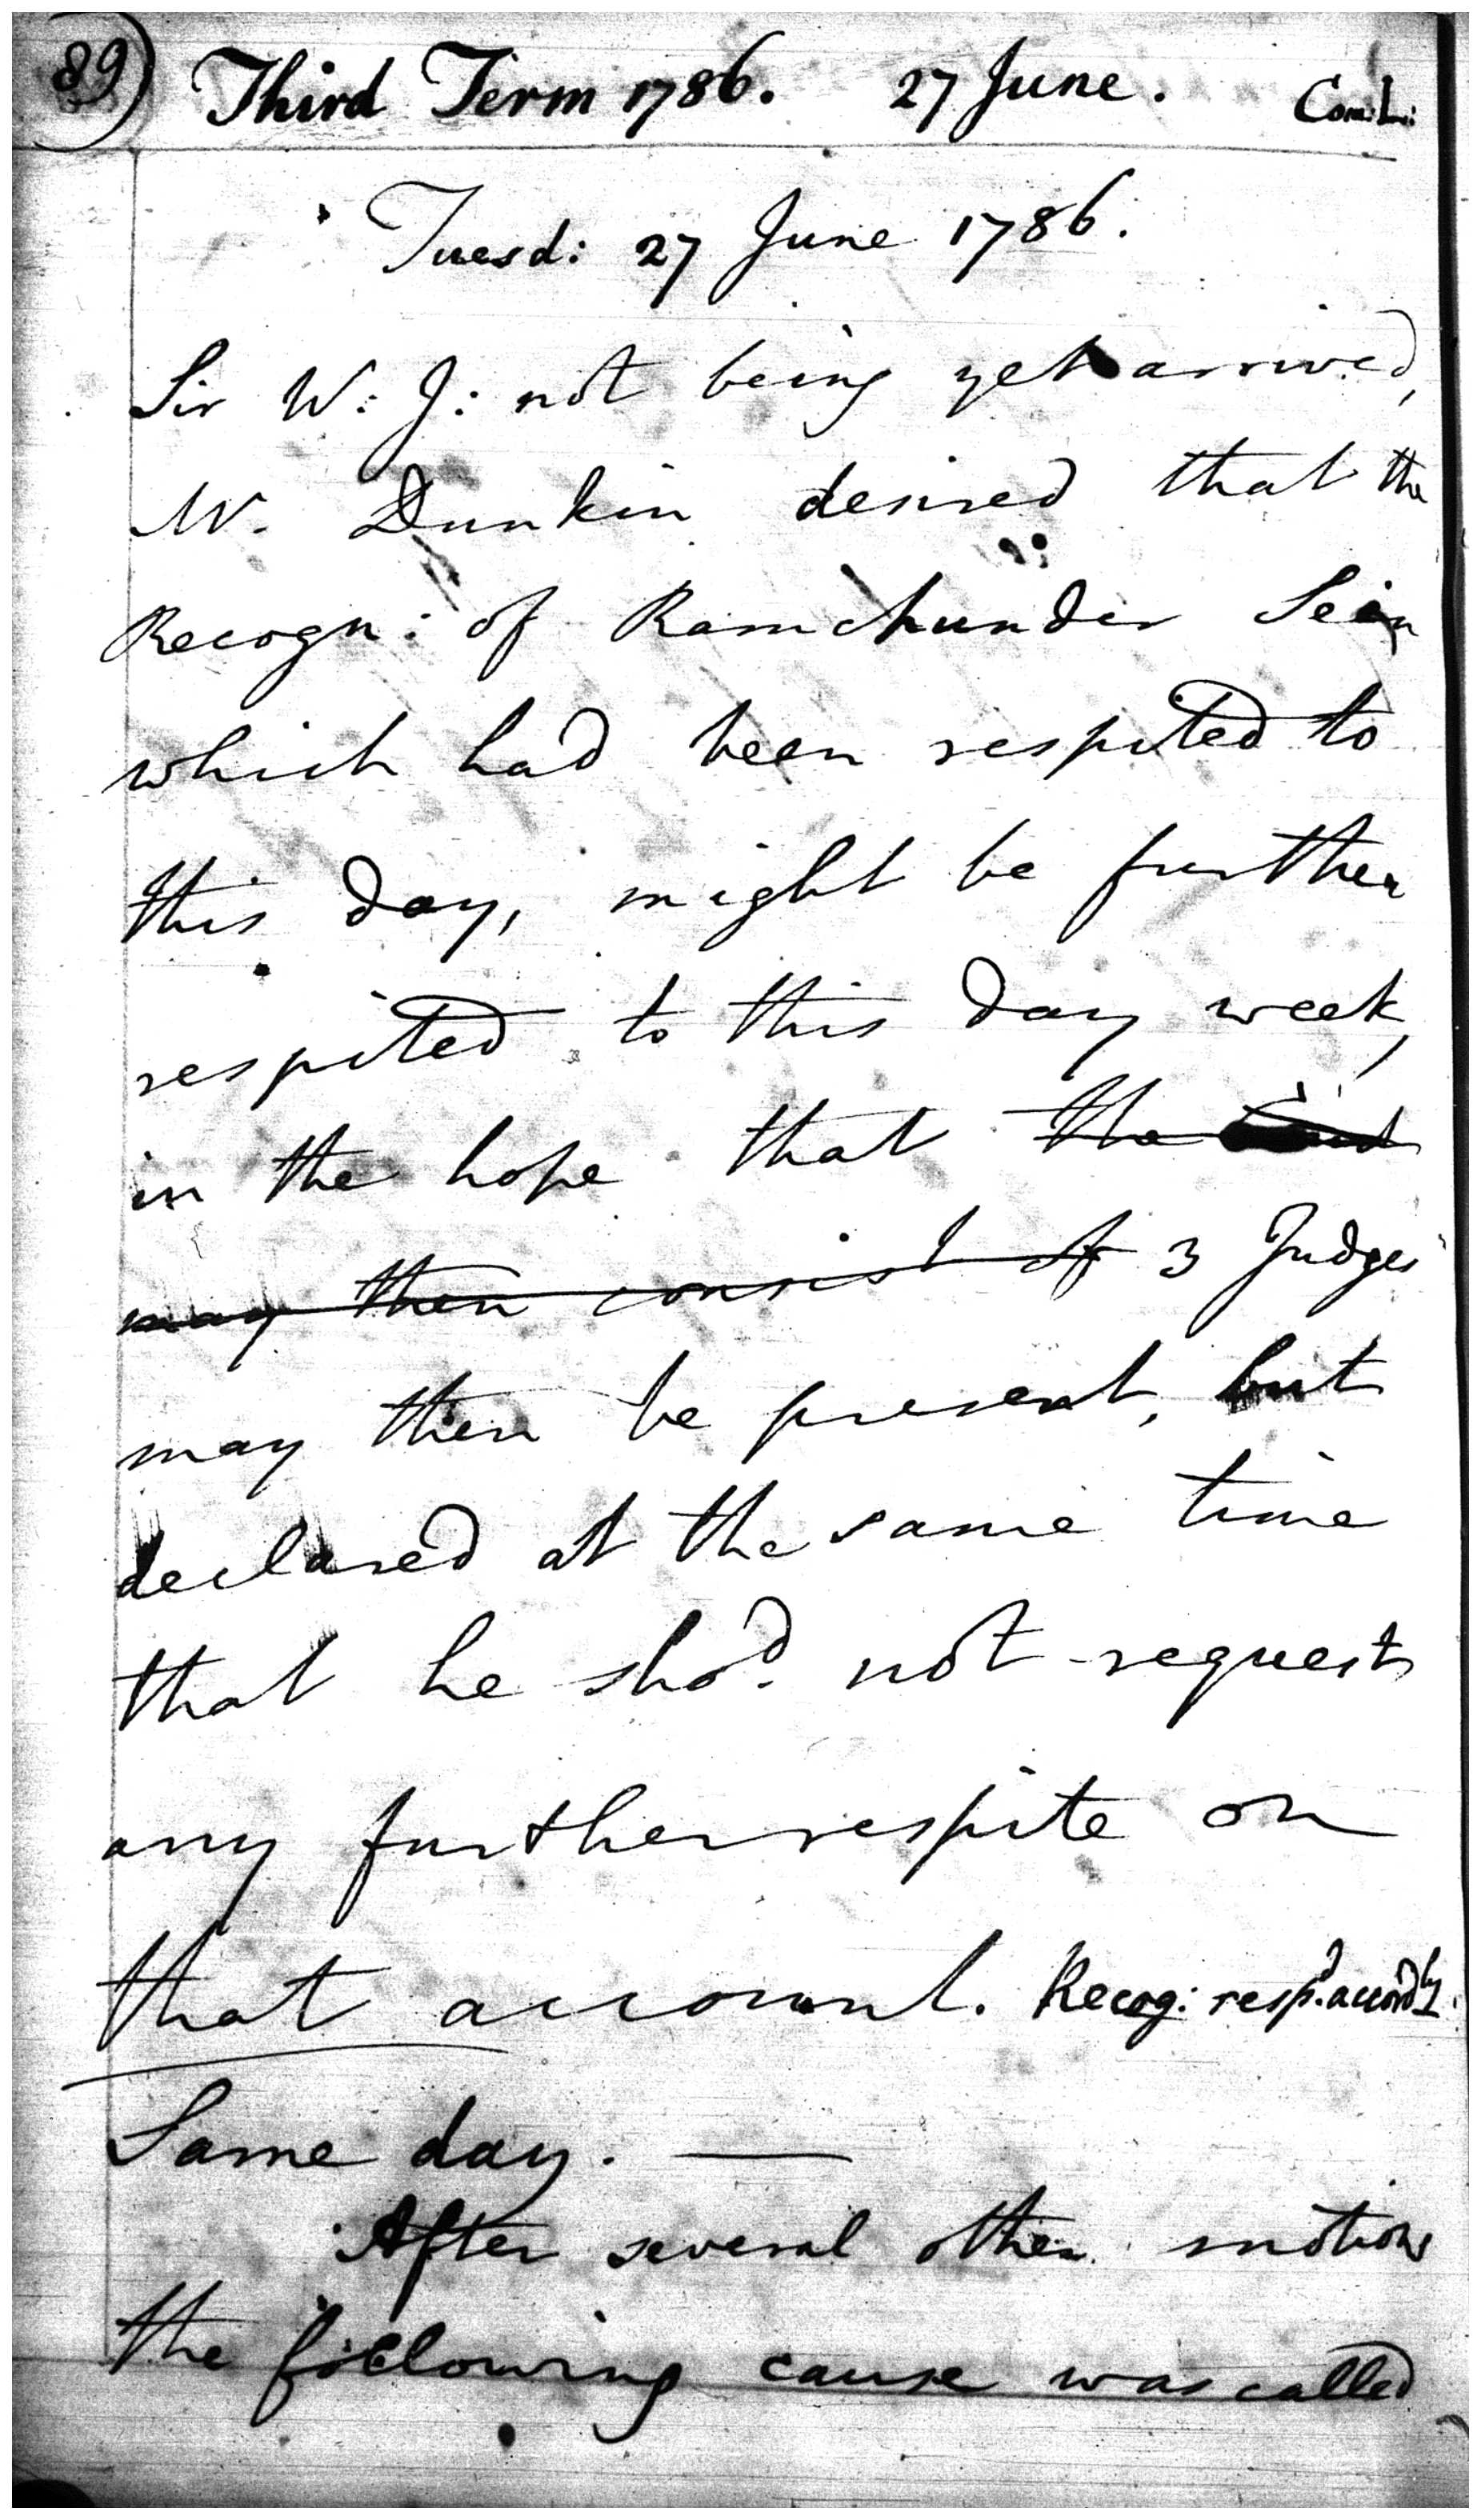 89) Third Term 1786. 27 June. Com: L:
Tuesd: 27 June 1786.
Sir W: J: not being yet arrived,
Mr. Dunkin desired that the
Recogn: of Ramchunder Sein
which had been respited to
this day, might be further
respited to this day week,
in the hope that the
may then consist of 3 Judges
may then be present, but
declared at the same time
that he shod. not request
any further respite on
that account. Recog: respd. accordly.
Same day. —
After several other motions
the following cause was called